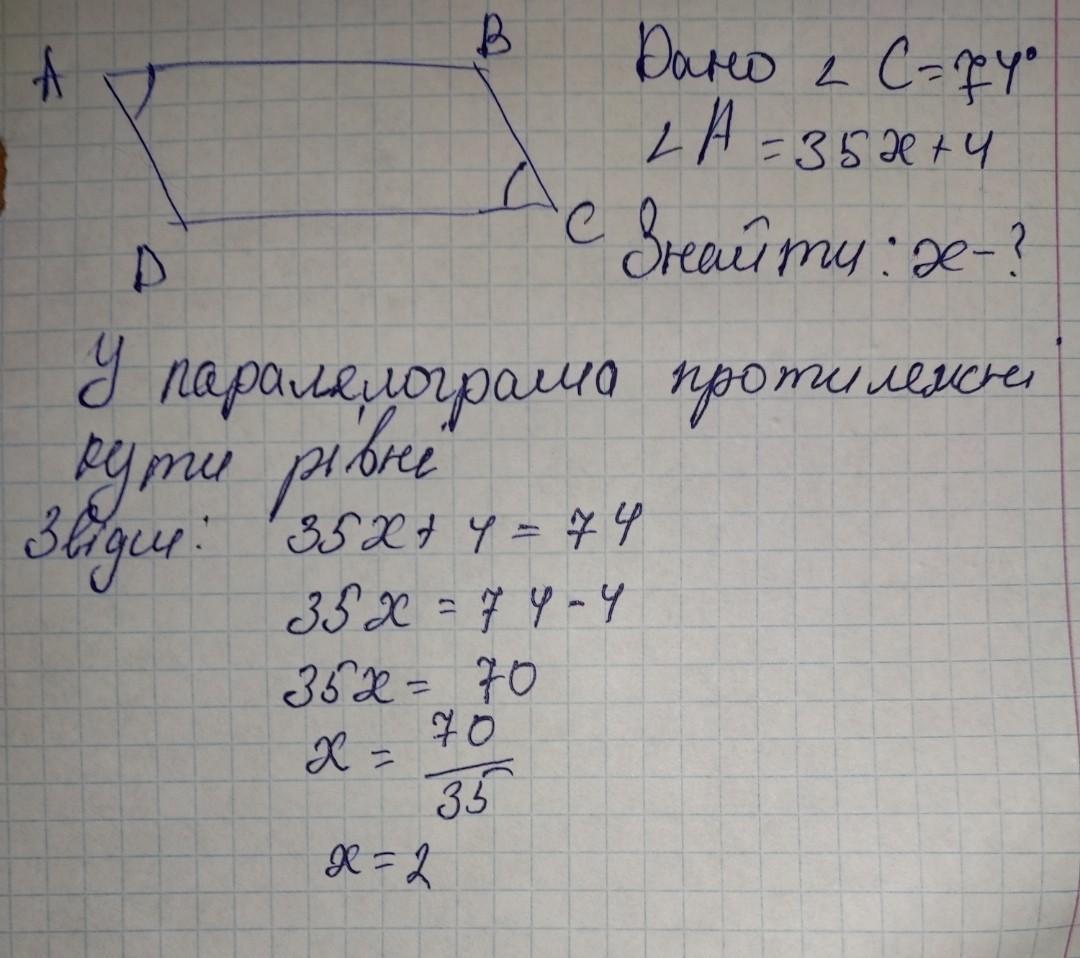 A
B
Дано ∠ C=74°
∠A = 35x+4
C
D
Знайти: x-?
У паралелограма протилежні
кути рівні
Звідси: 35x+ 4 = 74
35x = 74-4
35x = 70
x = 70/35
x = 2